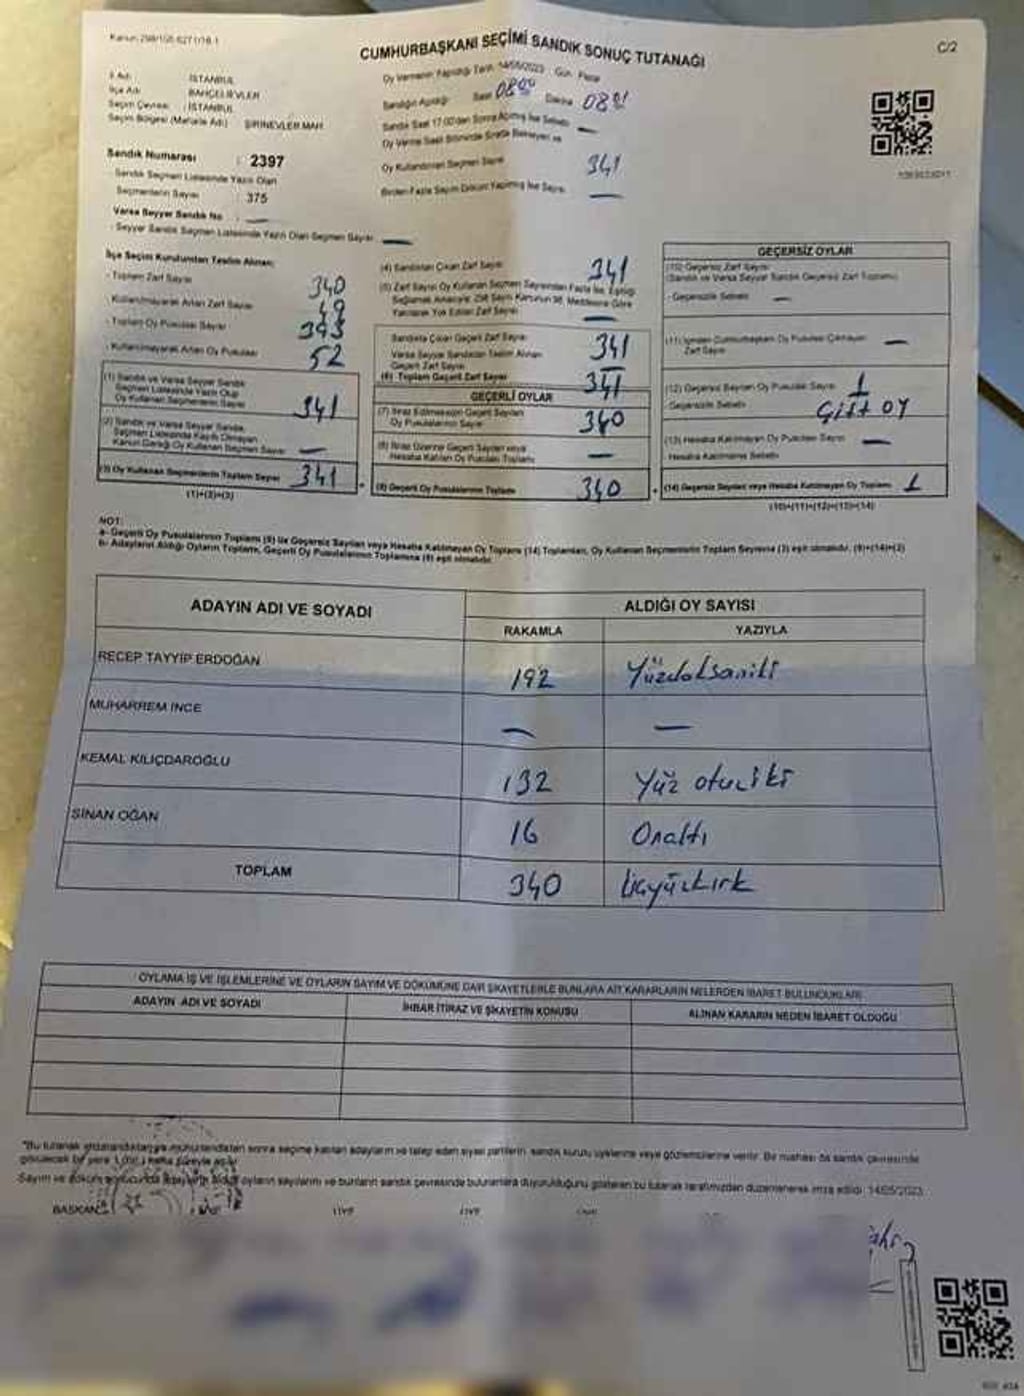 Kanun 298/105 627 l/16-1
C/2
CUMHURBAŞKANI SEÇİMİ SANDIK SONUÇ TUTANAĞI
İl Adı : İSTANBUL
İlçe Adı : BAHÇELİEVLER
Seçim Çevresi : İSTANBUL
Seçim Bölgesi (Mahalle Adı) : ŞİRİNEVLER MAH.
Sandık Numarası : 2397
Sandık Seçmen Listesinde Yazılı Olan
Seçmenlerin Sayısı : 375
Varsa Seyyar Sandık No : —
- Seyyar Sandık Seçmen Listesinde Yazılı Olan Seçmen Sayısı —
Oy Vermenin Yapıldığı Tarih 14/05/2023 Gün Pazar
Sandığın Açıldığı Saat 08 Dakika 08
Sandık Saat 17:00'den Sonra Açılmış İse Sebebi —
Oy Verme Saati Bitiminde Sırada Bekleyen ve
Oy Kullandırılan Seçmen Sayısı 341
Birden Fazla Sayım Döküm Yapılmış İse Sayısı —
İlçe Seçim Kurulundan Teslim Alınan:
- Toplam Zarf Sayısı 340
- Kullanılmayarak Artan Zarf Sayısı 49
- Toplam Oy Pusulası Sayısı 393
- Kullanılmayarak Artan Oy Pusulası 52
(1) Sandık ve Varsa Seyyar Sandık
Seçmen Listesinde Yazılı Olup
Oy Kullanan Seçmenlerin Sayısı 341
(2) Sandık ve Varsa Seyyar Sandık
Seçmen Listesinde Kayıtlı Olmayan
Kanun Gereği Oy Kullanan Seçmen Sayısı —
(3) Oy Kullanan Seçmenlerin Toplam Sayısı 341
(1)+(2)=(3)
(4) Sandıktan Çıkan Zarf Sayısı 341
(5) Zarf Sayısı Oy Kullanan Seçmen Sayısından Fazla İse, Eşitliği
Sağlamak Amacıyla; 298 Sayılı Kanunun 98. Maddesine Göre
Yakılarak Yok Edilen Zarf Sayısı —
Sandıkta Çıkan Geçerli Zarf Sayısı 341
Varsa Seyyar Sandıktan Teslim Alınan
Geçerli Zarf Sayısı —
(6) Toplam Geçerli Zarf Sayısı 341
GEÇERLİ OYLAR
(7) İtiraz Edilmeksizin Geçerli Sayılan
Oy Pusulalarının Sayısı 340
(8) İtiraz Üzerine Geçerli Sayılan veya
Hesaba Katılan Oy Pusulası Toplamı —
(9) Geçerli Oy Pusulalarının Toplamı 340
GEÇERSİZ OYLAR
(10) Geçersiz Zarf Sayısı
(Sandık ve Varsa Seyyar Sandık Geçersiz Zarf Toplamı)
- Geçersizlik Sebebi —
(11) İçinden Cumhurbaşkanı Oy Pusulası Çıkmayan
Zarf Sayısı —
(12) Geçersiz Sayılan Oy Pusulası Sayısı 1
Geçersizlik Sebebi Çift OY
(13) Hesaba Katılmayan Oy Pusulası Sayısı —
Hesaba Katılmama Sebebi
(14) Geçersiz Sayılan veya Hesaba Katılmayan Oy Toplamı 1
(10)+(11)+(12)+(13)=(14)
NOT:
a- Geçerli Oy Pusulalarının Toplamı (9) ile Geçersiz Sayılan veya Hesaba Katılmayan Oy Toplamı (14) Toplamları, Oy Kullanan Seçmenlerin Toplam Sayısına (3) eşit olmalıdır. (9)+(14)=(3)
b- Adayların Aldığı Oyların Toplamı, Geçerli Oy Pusulalarının Toplamına (9) eşit olmalıdır.
ADAYIN ADI VE SOYADI ALDIĞI OY SAYISI
RAKAMLA YAZIYLA
RECEP TAYYİP ERDOĞAN 192 Yüzdoksaniki
MUHARREM İNCE — —
KEMAL KILIÇDAROĞLU 132 Yüz otuziki
SİNAN OĞAN 16 Onaltı
TOPLAM 340 üçyüzkırk
OYLAMA İŞ VE İŞLEMLERİNE VE OYLARIN SAYIM VE DÖKÜMÜNE DAİR ŞİKAYETLERLE BUNLARA AİT KARARLARIN NELERDEN İBARET BULUNDUKLARI
ADAYIN ADI VE SOYADI İHBAR İTİRAZ VE ŞİKAYETİN KONUSU ALINAN KARARIN NEDEN İBARET OLDUĞU
"Bu tutanak mühürlendikten sonra seçime katılan adayların ve talep eden siyasi partilerin sandık kurulu üyelerine veya gözlemcilerine verilir. Bir nüshası da sandık çevresinde
görülecek bir yere 1 (bir) hafta süreyle asılır.
Sayım ve döküm sonucunda adayların aldığı oyların sayılarını ve bunların sandık çevresinde bulunanlara duyurulduğunu gösteren bu tutanak tarafımızdan düzenlenerek imza edildi. 14/05/2023
BAŞKAN ÜYE ÜYE ÜYE